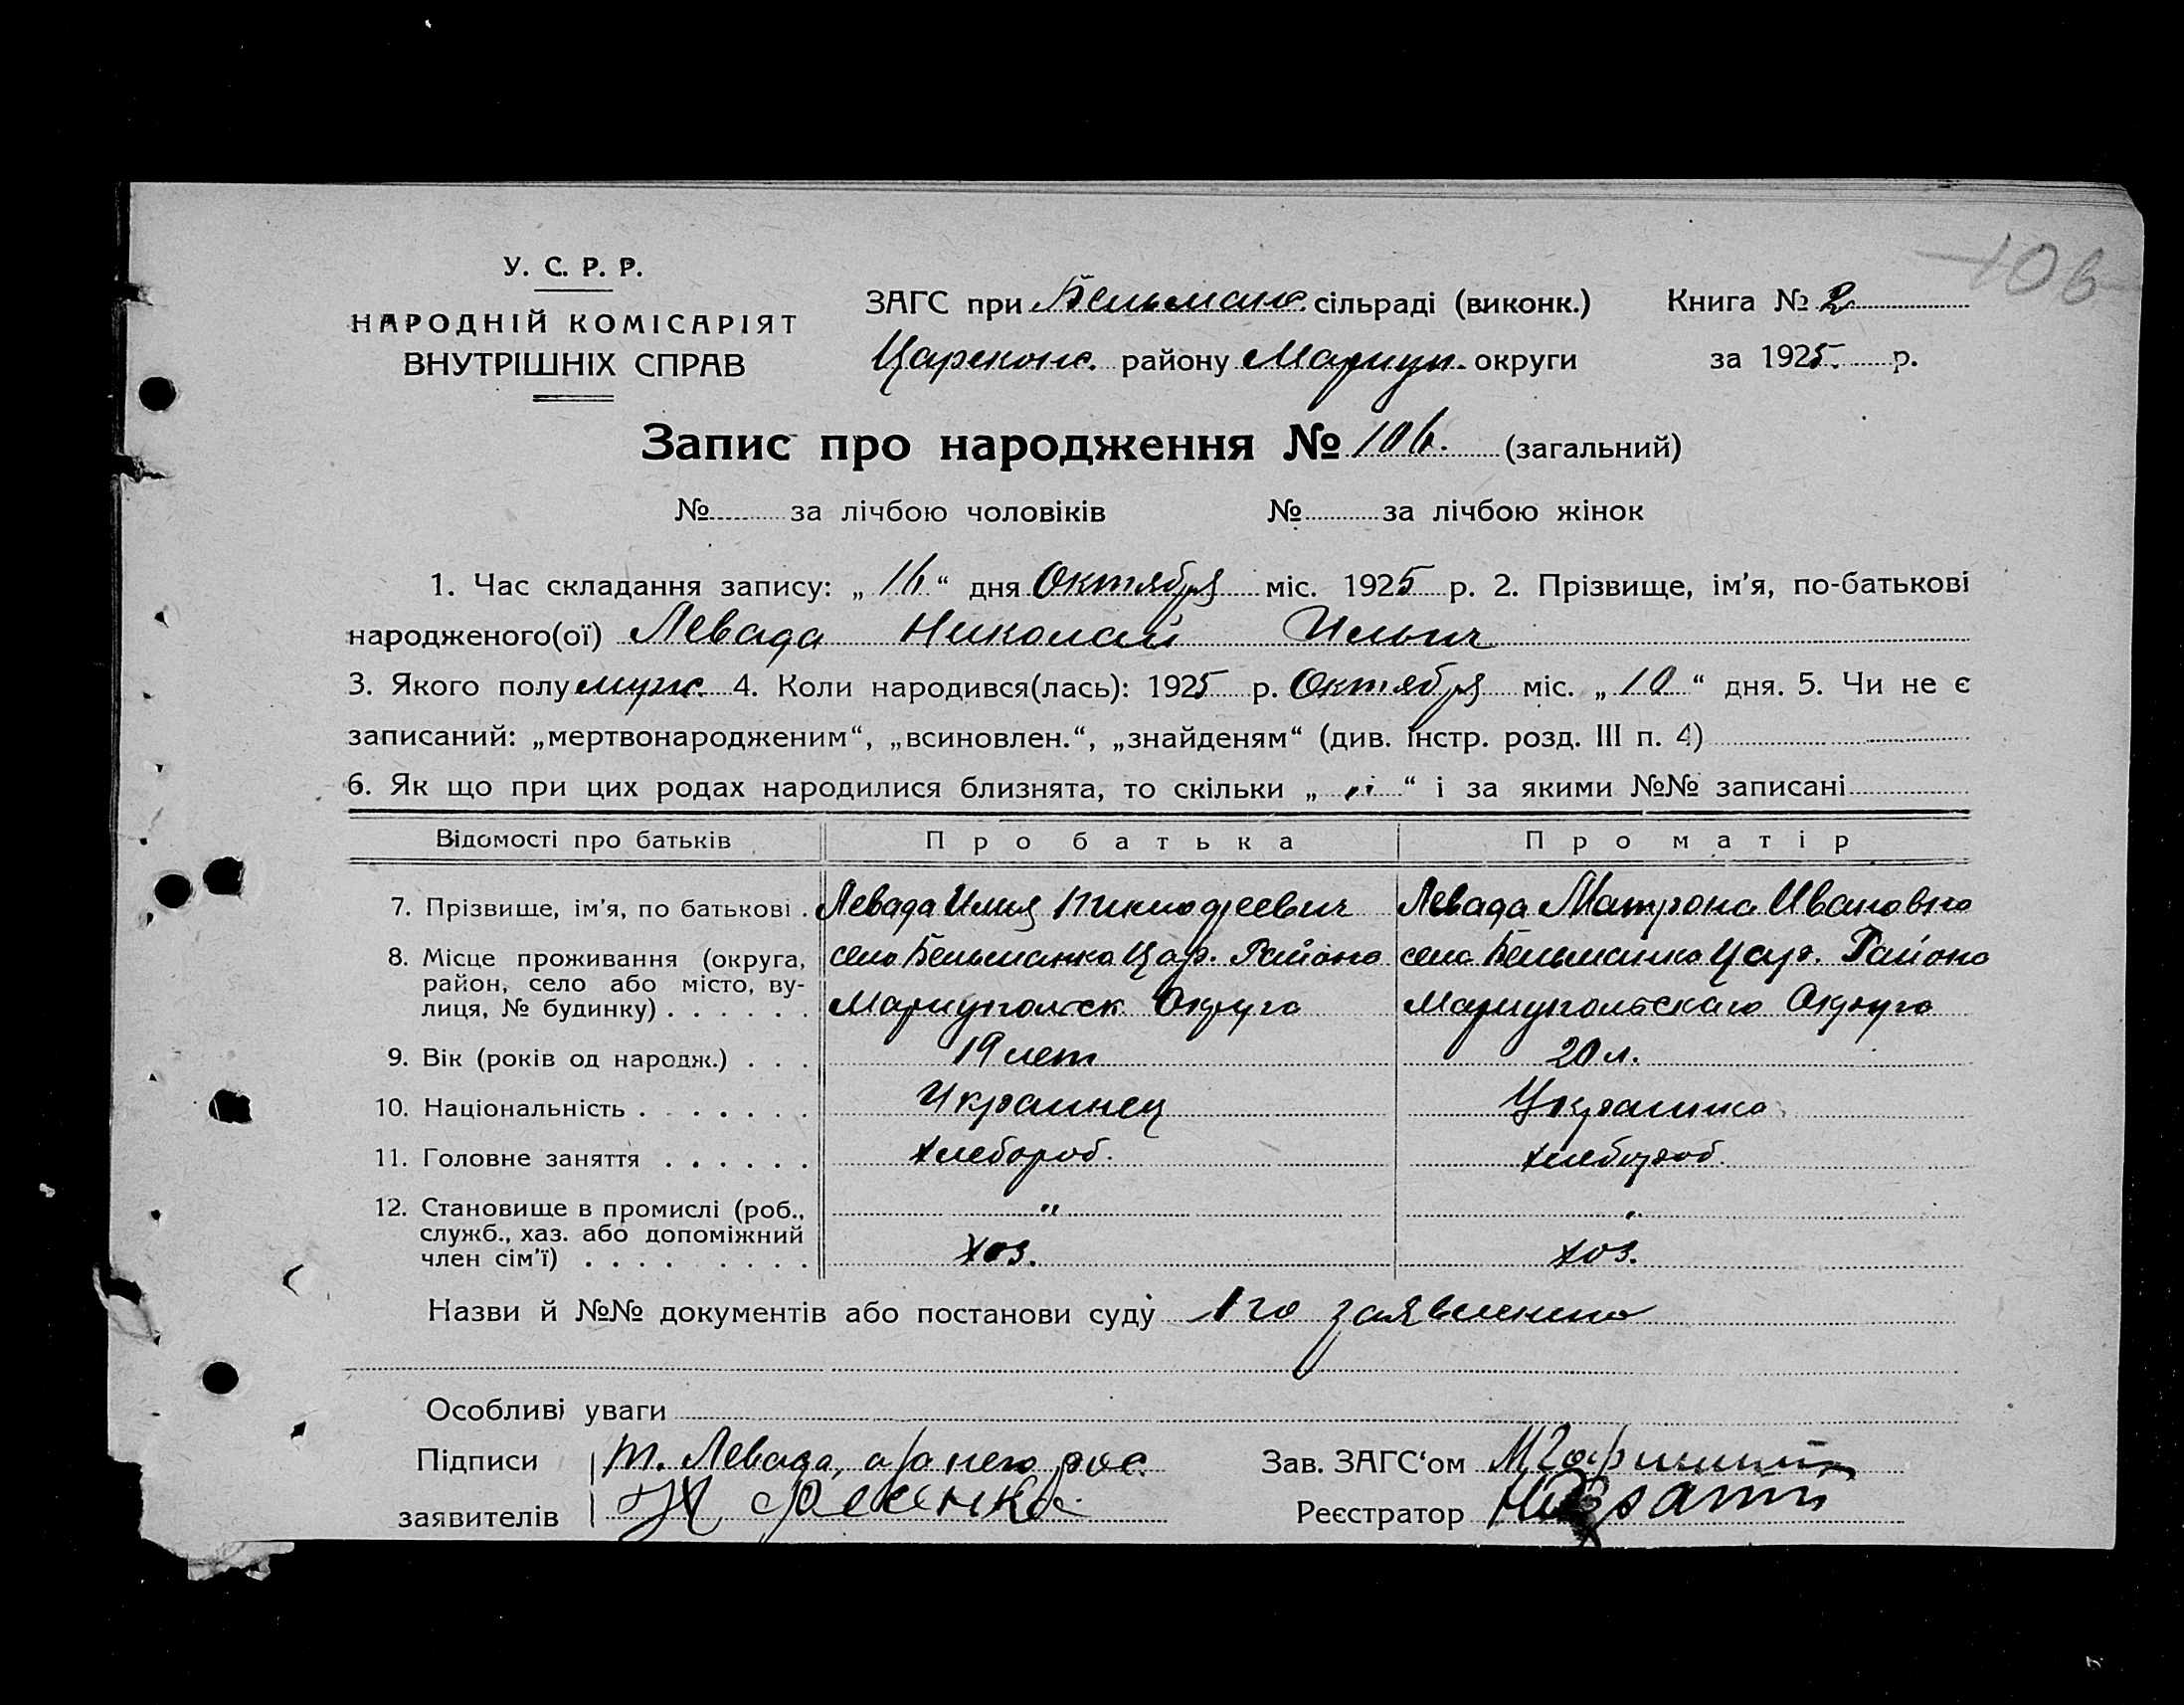 106
У. С. Р. Р.
НАРОДНІЙ КОМІСАРІЯТ
ВНУТРІШНІХ СПРАВ
ЗАГС при Бельманс. сільраді (виконк.) Книга № 2
Царекон. району Мариуп. округи за 1925. р.
Запис про народження № 106. (загальний)
№ за лічбою чоловіків № за лічбою жінок
1. Час складання запису: „16“ дня Октября міс. 1925 р. 2. Прізвище, ім'я, по-батькові
народженого(ої) Левада Николай Ильич
3. Якого полу муж. 4. Коли народився(лась): 1925 р. Октября міс. „10“ дня. 5. Чи не є
записаний: „мертвонародженим“, „всиновлен.“, „знайденям“ (див. інстр. розд. III п. 4)
6. Як що при цих родах народилися близнята, то скільки „ “ і за якими №№ записані
Відомості про батьків Про батька Про матір
7. Прізвище, ім'я, по батькові . Левада Илия Левада Матрона Ивановна
8. Місце проживання (округа, село Бельманка Цар. Района село Бельманка Цар. Района
район, село або місто, ву-
лиця, № будинку) . . . . . . Мариупольск Округа Мариупольскаго Округа
9. Вік (років од народж.) . . . 19 лет 20 л.
10. Національність . . . . . . . Украинец Украинка
11. Головне заняття . . . . . . Хлебороб. хлебороб.
12. Становище в промислі (роб., „ „
служб., хаз. або допоміжний
член сім'ї) . . . . . . . . хоз. хоз.
Назви й №№ документів або постанови суду заявлению
Особливі уваги
Підписи т. Левада, а за него рос. Зав. ЗАГС‘ом
заявителів Реєстратор